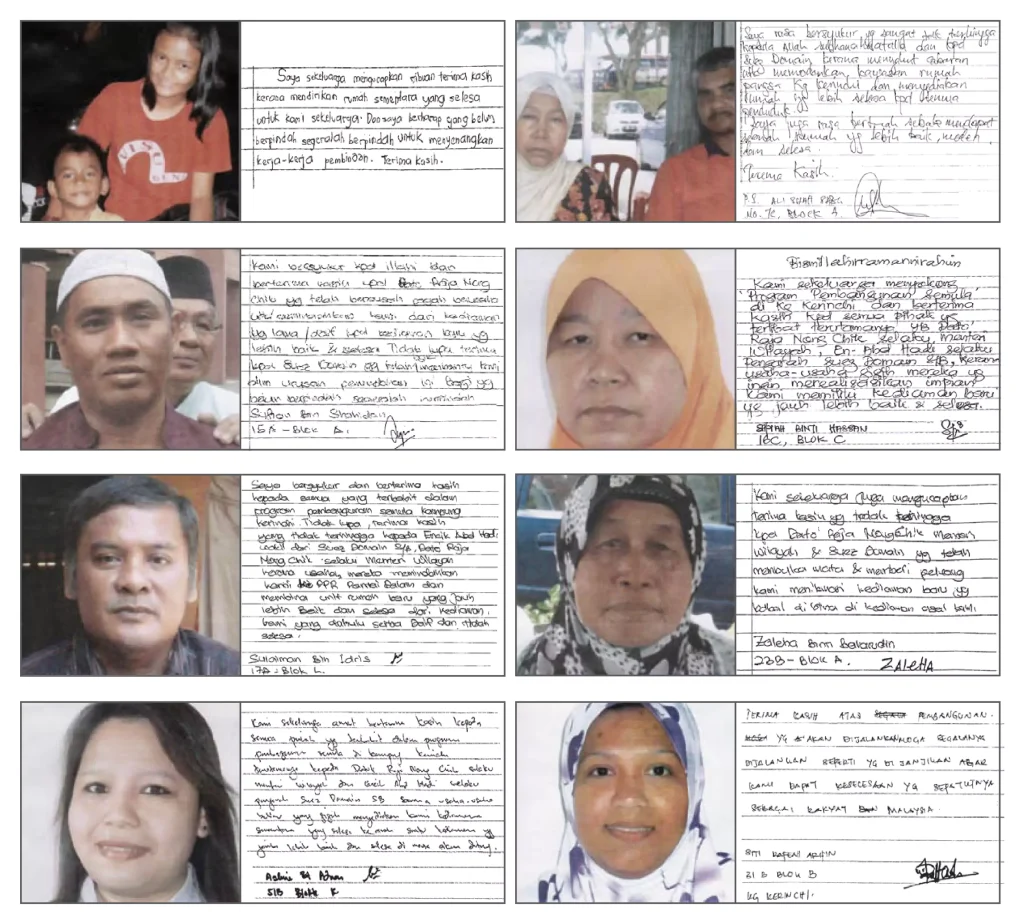 Saya sekeluarga mengucapkan ribuan terima kasih
kerana mendirikan rumah sementara yang selesa
untuk kami sekeluarga. Dan saya berharap yang belum
berpindah segeralah berpindah untuk menyenangkan
kerja-kerja pembinaan. Terima kasih.
Saya rasa bersyukur yg sangat
kepada Allah dan kpd
Suez Domain kerana menyahut
memodenkan, kawasan rumah
pangsa Kg Kerinchi dan menyediakan
rumah yg lebih selesa kpd semua
penduduk
Saya juga rasa bertuah
rumah yg lebih baik,
dan selesa.
Terima Kasih.
No. 7C, BLOCK A.
Kami bersyukur kpd illahi dan
berterima kasih kpd Dato Raja Nong
Chik yg telah bersusah payah berusaha
kami dari kediaman
yg lama / kpd kediaman baru yg
lebih baik & selesa. Tidak lupa terima
kpd Suez Domain yg telah membantu kami
dlm urusan perpindahan ini. Bagi yg
belum berpindah
Suffian Bin
15A - Blok A.
Bismillahirramanirrahim
Kami sekeluarga menyokong
Program Pembangunan Semula
di Kg Kerinchi dan berterima
kasih kpd semua pihak yg
terlibat terutamanya YB Dato'
Raja Nong Chik selaku Menteri
Wilayah, En. Abd Hadi selaku
Pengarah Suez Domain S/B, kerana
usaha-usaha gigih mereka yg
ingin merealisasikan impian
kami memiliki kediaman baru
yg jauh lebih baik & selesa.
BINTI HASSAN
10C, BLOK C
Saya bersyukur dan berterima kasih
kepada semua yang terbabit dalam
program pembangunan semula kampung
kerinchi. Tidak lupa, terima kasih
yang tidak terhingga kepada Encik Abd Hadi
wakil dari Suez Domain S/B, Dato Raja
Nong Chik selaku Menteri Wilayah
kerana usaha mereka memindahkan
kami ke PPR Pantai Dalam dan
membina unit rumah baru yang jauh
lebih baik dan selesa dari kediaman
kami yang dahulu serba daif dan tidak
selesa.
Sulaiman Bin Idris
17A - Blok L.
Kami sekeluarga juga mengucapkan
terima kasih yg tidak terhingga
kpd Dato' Raja Nong Chik Menteri
Wilayah & Suez Domain yg telah
membuka mata & memberi peluang
kami menikmati kediaman baru yg
bakal dibina di kediaman asal kami
Zaleha Binti Baharudin
23B - Blok A. ZALEHA
Kami sekeluarga amat berterima kasih kepada
semua pihak yg terbabit dalam program
pembangunan semula di kampung Kerinchi
terutamanya kepada Datuk Raja Nong Chik selaku
menteri wilayah dan Encik Abd Hadi selaku
pengarah Suez Domain SB kerana usaha-usaha
beliau yang gigih menyediakan kami kediaman
sementara yang selesa
jauh lebih baik dan selesa di masa akan datang.
51B Blok K
TERIMA KASIH ATAS PEMBANGUNAN
YG AKAN DIJALANKAN. MOGA SEGALANYA
DIJALANKAN SEPERTI YG DI JANJIKAN AGAR
KAMI DAPAT KESELESAAN YG SEPATUTNYA
SEBAGAI RAKYAT MALAYSIA.
SITI ARIFIN
21 B BLOK B
KG KERINCHI.